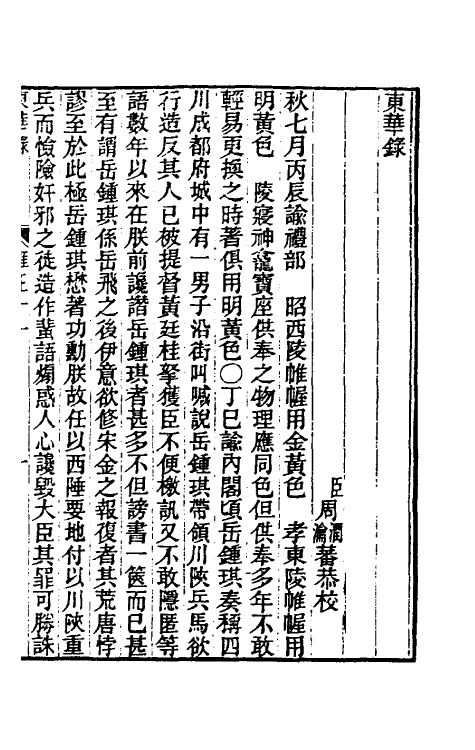 東華錄
臣周潤蕃瀹蕃恭校
秋七月丙辰諭禮部 昭西陵帷幄用金黃色 孝東陵帷幄用
明黃色 陵寢神龕寶座供奉之物理應同色但供奉多年不敢
輕易更換之時著俱用明黃色○丁巳諭內閣頃岳鍾琪奏稱四
川成都府城中有一男子沿街叫喊說岳鍾琪帶領川陝兵馬欲
行造反其人已被提督黃廷桂拏獲臣不便檄訊又不敢隱匿等
語數年以來在朕前讒譖岳鍾琪者甚多不但謗書一篋而已甚
至有謂岳鍾琪係岳飛之後伊意欲修宋金之報復者其荒唐悖
謬至於此極岳鍾琪懋著功勳朕故任以西陲要地付以川陝重
兵而憸險奸邪之徒造作蜚語煽惑人心讒毀大臣其罪可勝誅